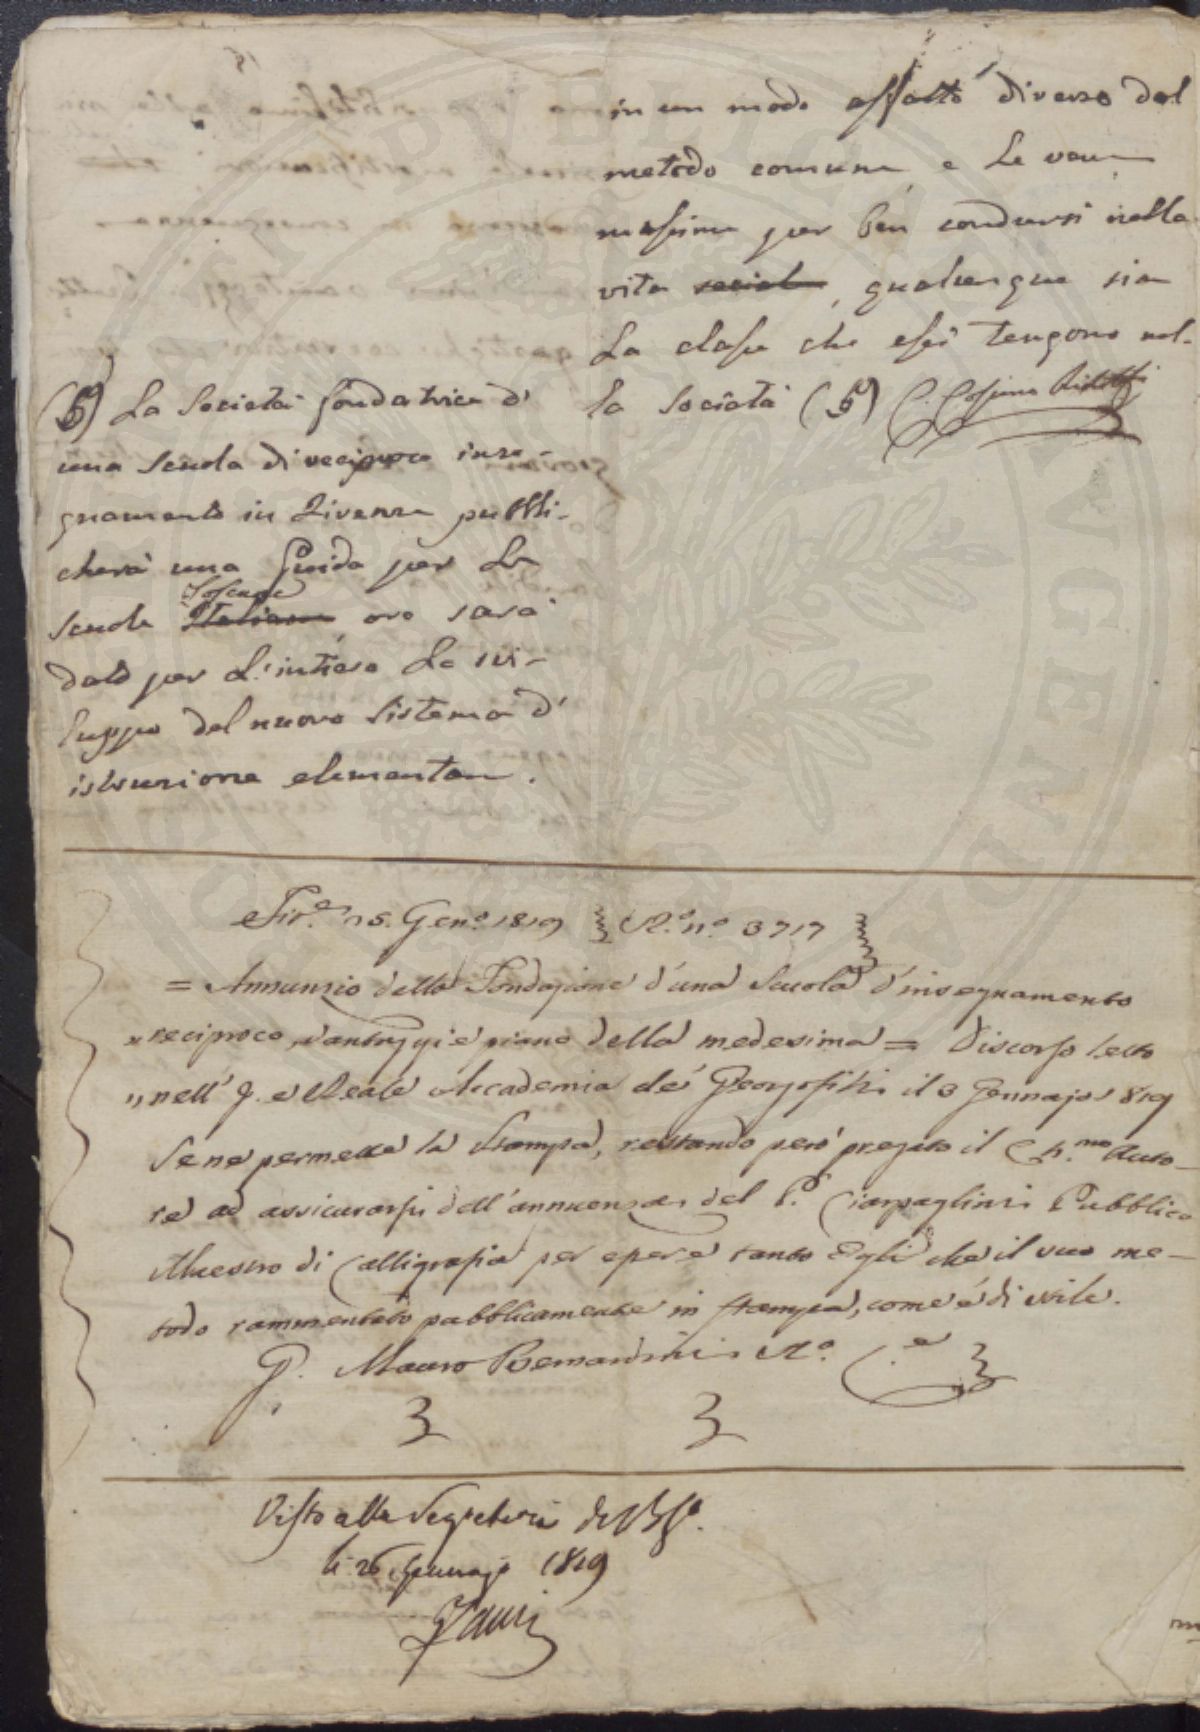 in un modo affatto diverso dal
metodo comune e le vere
massime per ben condursi nella
vita sociale, qualunque sia
la classe che essi tengono nel-
la Società (5) C. Cosimo Ridolfi
(5) La Società fondatrice d'
una scuola di reciproco inse-
gnamento in Firenze pubbli-
cherà una Guida per le
scuole Italiane Toscane ove sarà
dato per l'intiero lo svi-
luppo del nuovo sistema d'
istruzione elementare.
Fir.e 25. Gen.o 1819 R.o n.o 3717
= Annunzio della Fondazione d'una Scuola d'insegnamento
" reciproco, vantaggi e piano della medesima = Discorso letto
" nell' I. e Reale Accademia de' Georgofili il 3 Gennajo 1819
Se ne permette la stampa, restando però pregato il Ch.mo Auto-
re ad assicurarsi dell'annuenza del P. Ciarpaglini Pubblico
Maestro di Calligrafia per essere tanto Egli che il suo me-
todo rammentato pubblicamente in stampa, come è di stile.
P. Mauro Bernardini R.o C.e
Visto alla Segreteria del B. G.
li 26 Gennajo 1819